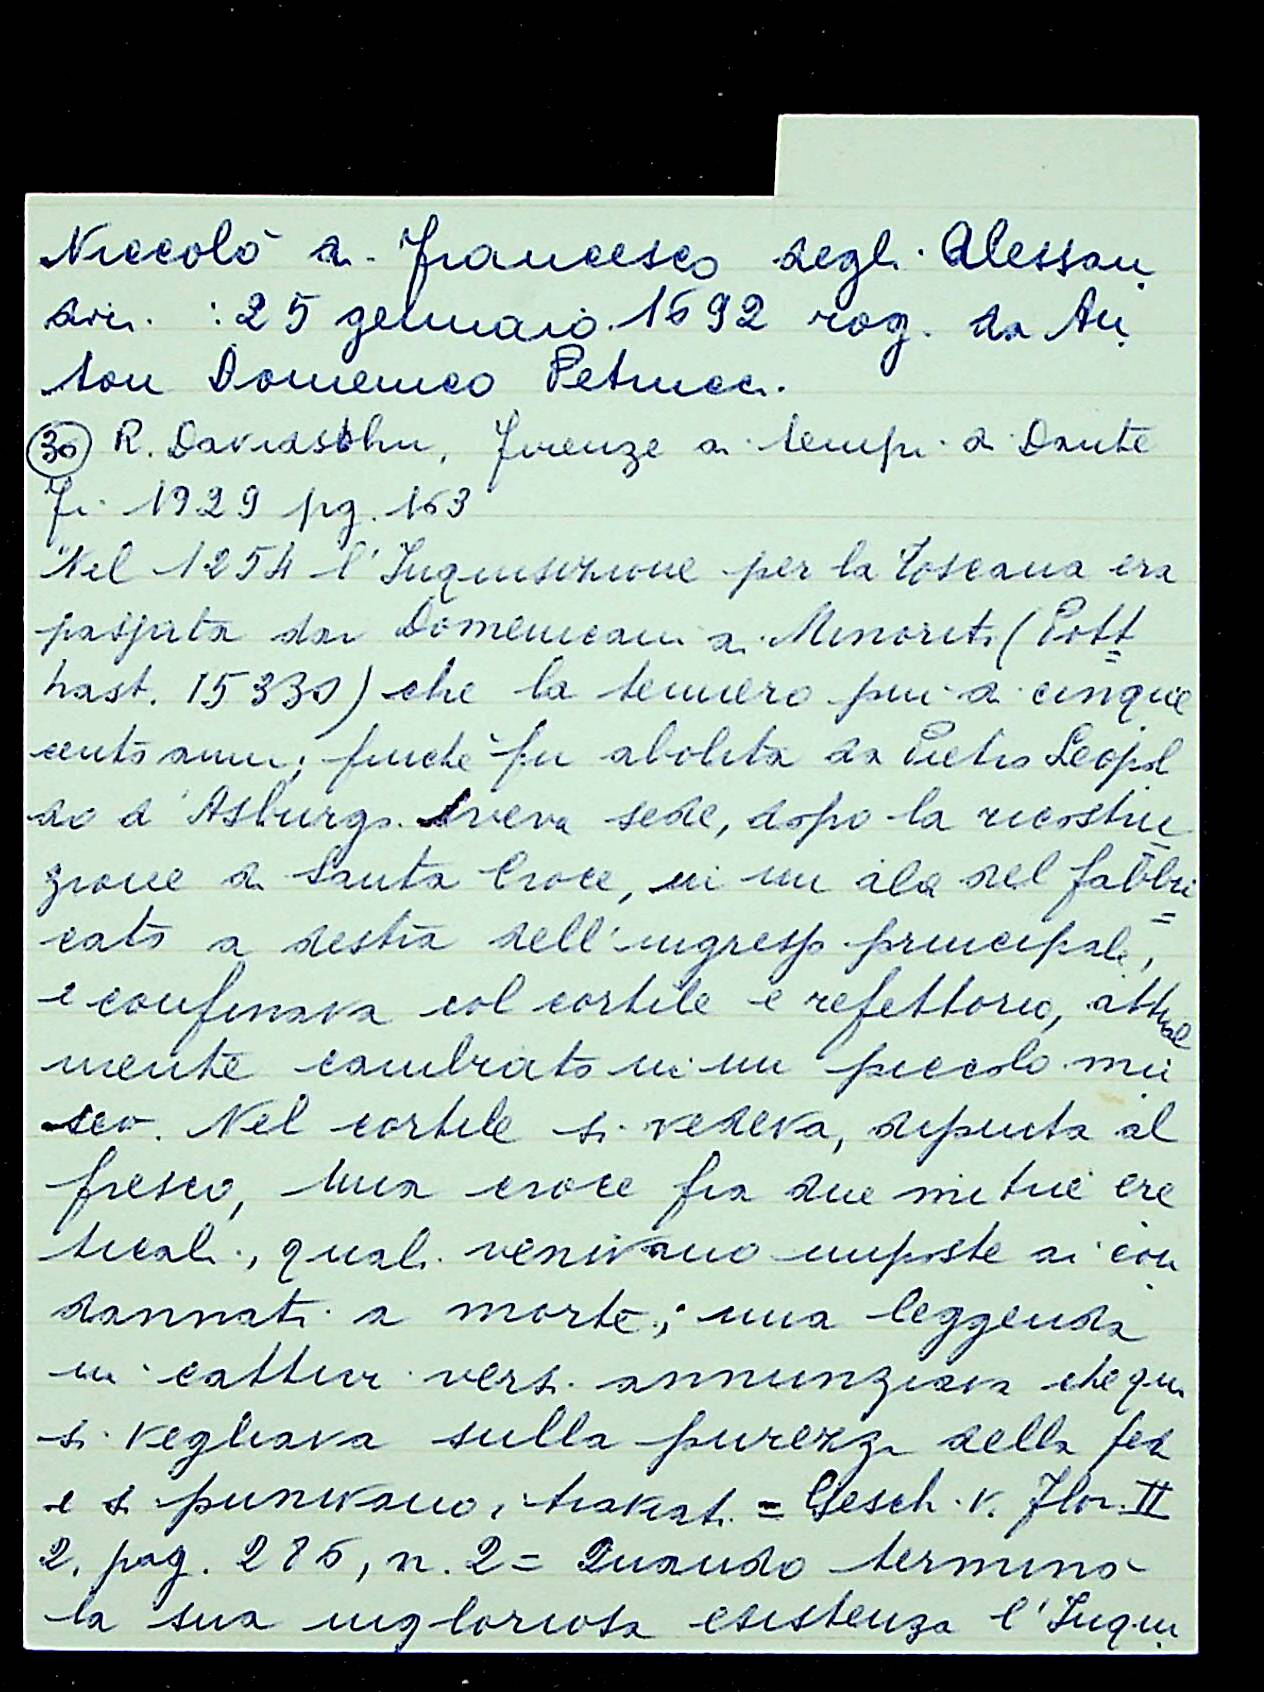 Niccolò di Francesco degli Alessan
dri : 25 gennaio 1692 rog. da An
ton Domenico Petrucci.
30 R. Davidsohn, Firenze ai tempi di Dante
Fi 1929 pg. 163
Nel 1254 l'Inquisizione per la Toscana era
passata dai Domenicani ai Minoriti (Pott=
hast. 15330) che la tennero piu di cinque
cento anni; finchè fu abolita da Pietro Leopol
do d'Asburgo. Aveva sede, dopo la ricostru
zione di Santa Croce, in un ala del fabbri=
cato a destra dell'ingresso principale,
e confinava col cortile e refettorio, attual
mente cambiato in un piccolo mu
seo. Nel cortile si vedeva, dipinta al
fresco, una croce fra due mitrie ere
ticali, quali venivano imposte ai con
dannati a morte; una leggenda
in cattivi versi annunziava che qui
si vegliava sulla purezza della fed
e si punivano i traviati = Gesch. v. Flor. II
2. pag. 286, n. 2 = Quando terminò
la sua ingloriosa esistenza l'Inqui